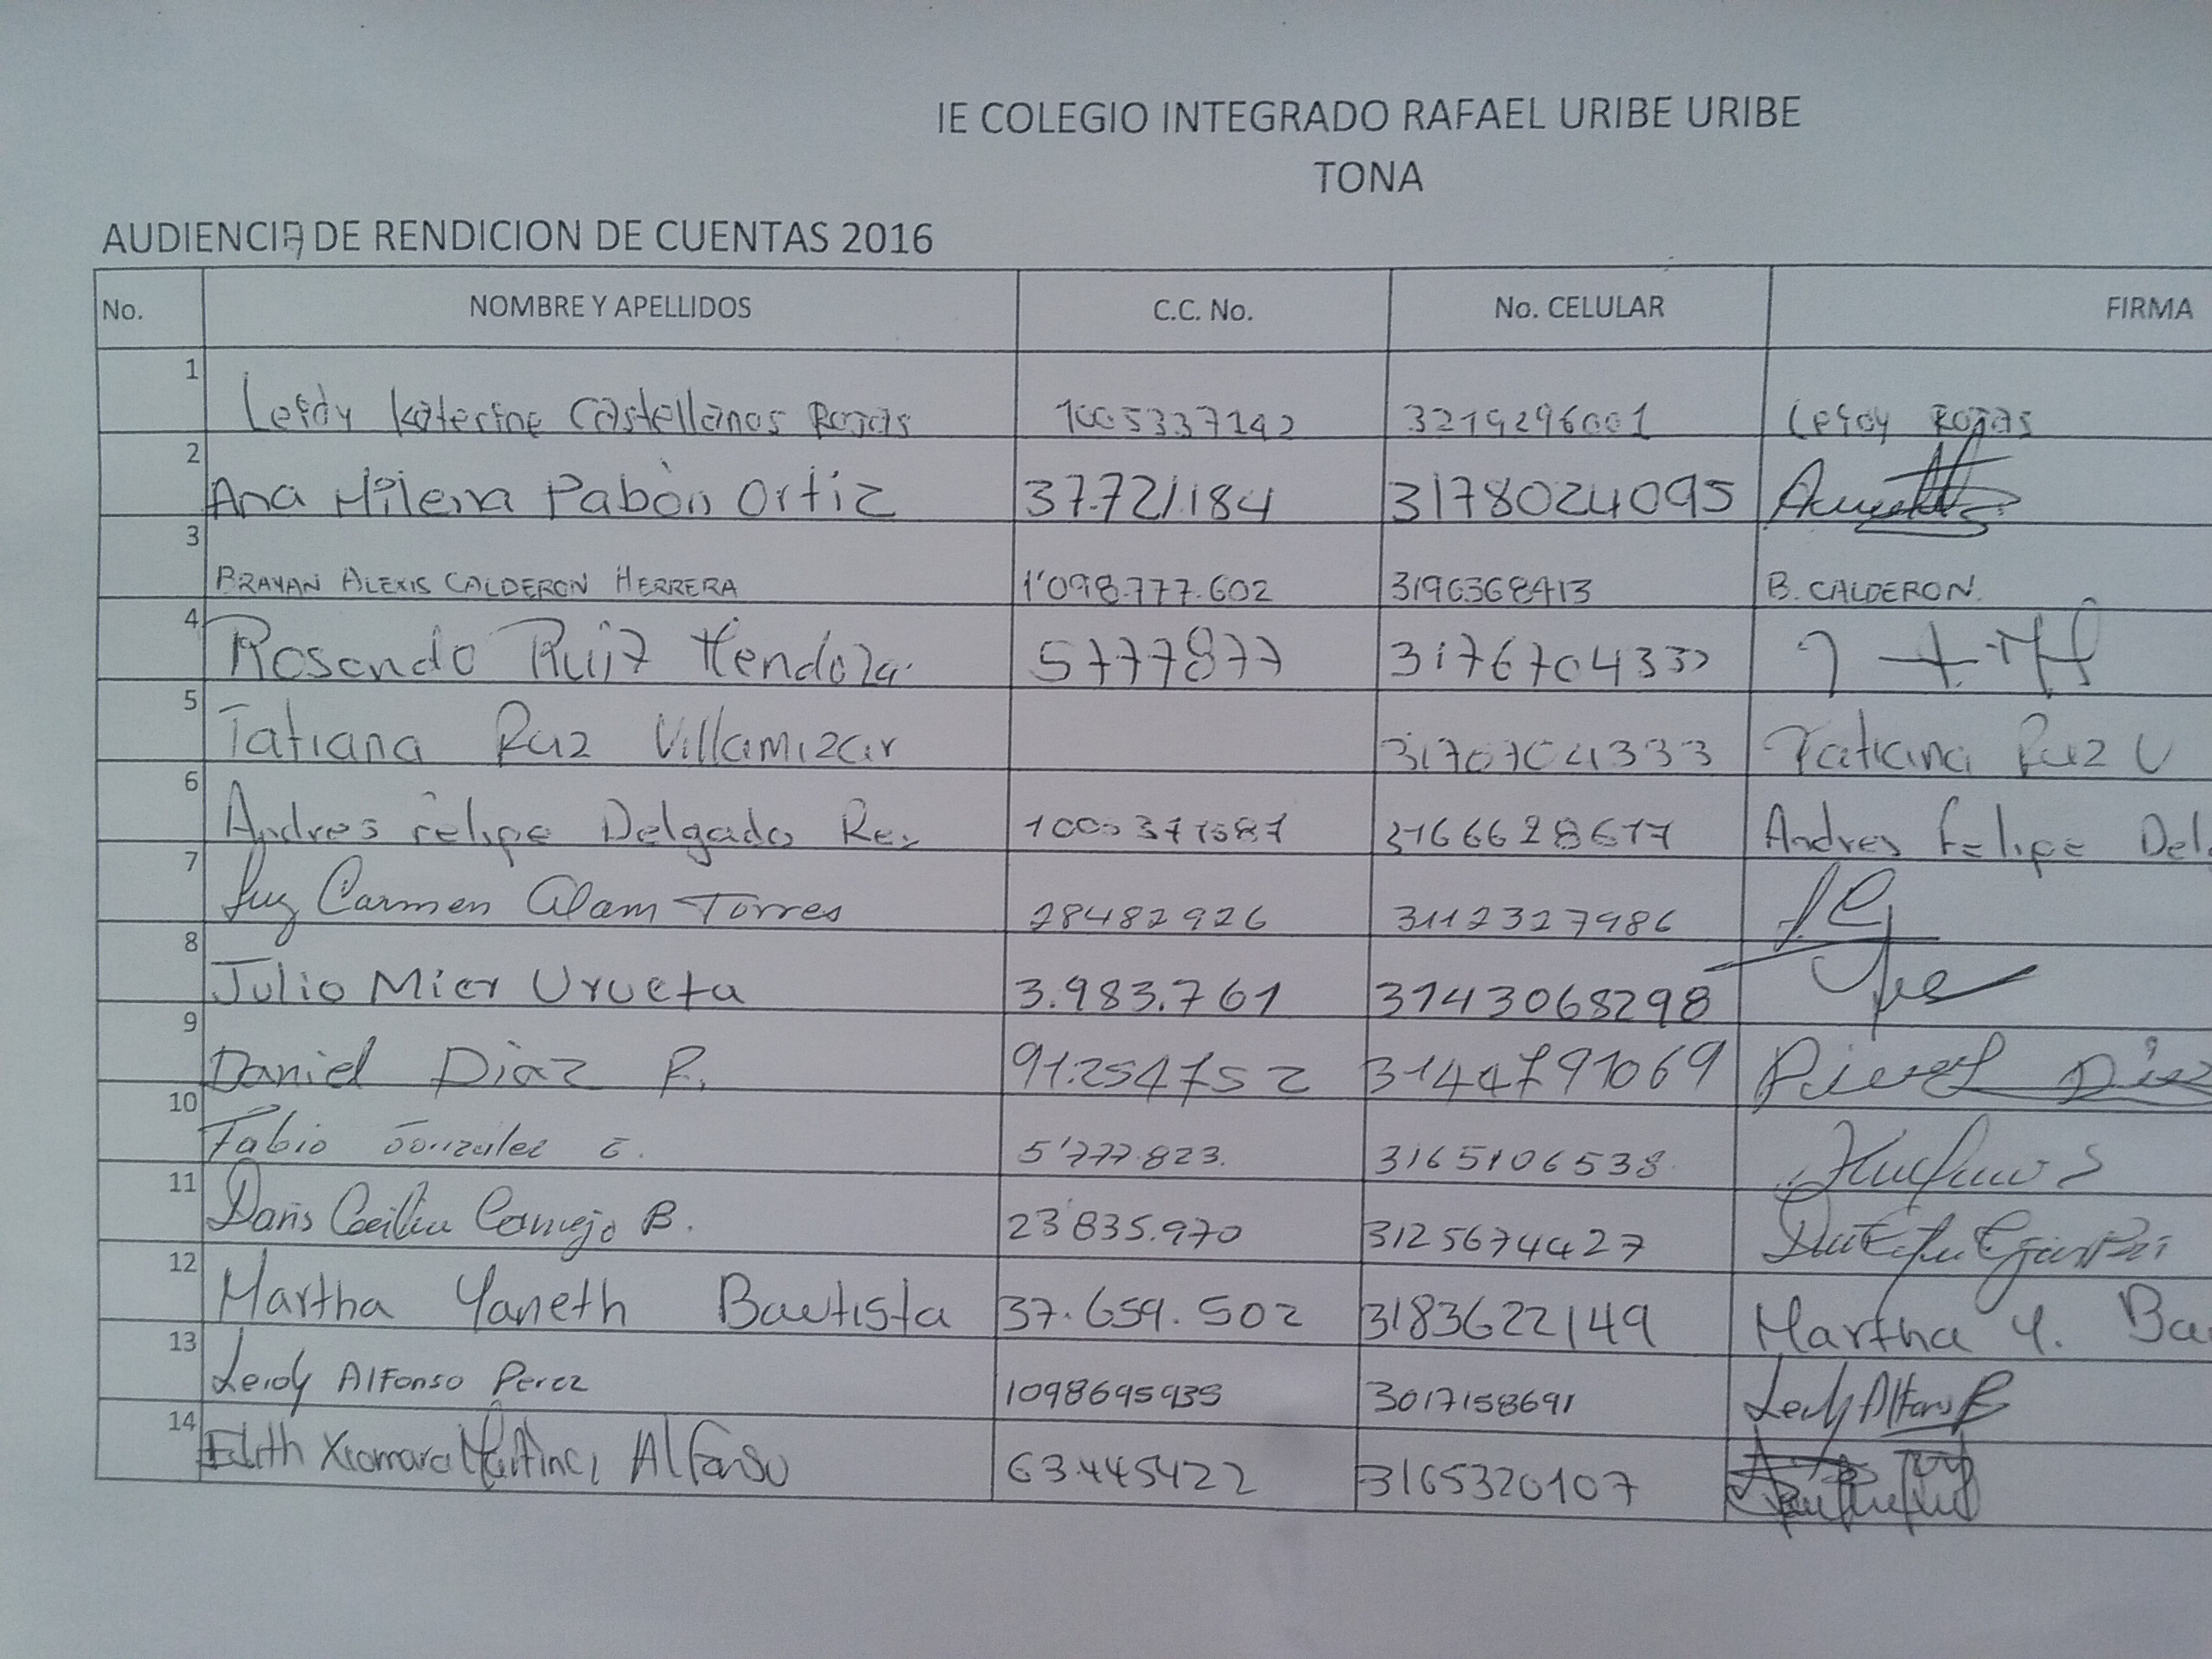 IE COLEGIO INTEGRADO RAFAEL URIBE URIBE
TONA
AUDIENCIA DE RENDICION DE CUENTAS 2016
No. NOMBRE Y APELLIDOS C.C. No. No. CELULAR FIRMA
1 Leidy Katerine Castellanos Rojas 1005337142 3219296001 Leidy Rojas
2 Ana Milena Pabòn Ortiz 37.721.184 3178024095
3 BRAYAN ALEXIS CALDERON HERRERA 1'098.777.602 3190368413 B. CALDERON.
4 Rosendo Ruiz Mendoza. 5777877
5 Tatiana Ruz Villamizar 3170704333 Tatiana Ruz V
6 Andres felipe Delgado 3166628677 Andres Felipe Del
7 Luz Carmen Alam Torres 28482926 3112327986
8 Julio Mier Urueta 3.983.761 3143068298
9 Daniel Diaz R. 91.254752 3144791069
10 Fabio Gonzalez G. 5'777.823. 3165106538
11 Doris Cecilia Cornejo B. 23'835.970 3125674427
12 Martha Yaneth Bautista 37.659.502 3183622149 Martha Y. Ba
13 Leidy Alfonso Perez 1098695935 3017158691 Leidy Alfonso P
14 Edith Xiomara Martinez Alfonso 63.445422 3165320107